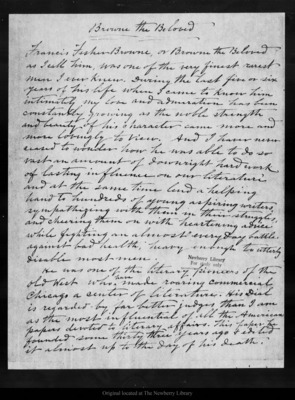 Browne the Beloved
Francis Fisher Browne, or Browne the Beloved
as I call him, was one of the very finest rarest
men I ever knew. During the last five or six
years of his life when I came to know him
intimately my love and admiration has been
constantly growing as the noble strength
and beauty of his character came more and
more lovingly to view. And I have never
ceased to wonder how he was able to do so
vast an amount of downright hard work
of lasting influence on our literature
and at the same time lend a helping
hand to hundreds of young aspiring writers,
sympathizing with them in their struggles,
and cheering them on with heartening advice
while fighting an almost every day battle
against bad health, heavy enough to utterly
disable most men.
Newberry Library
For study only
He was one of the literary pioneers of the
old West who, made roaring commercial
Chicago a center of literature. His Dial
is regarded by far better judges than I am
as the most influential of all the American
papers devoted to literary affairs. This paper he
founded some thirty three years ago & edited
it almost up to the day of his death.
Original located at The Newberry Library